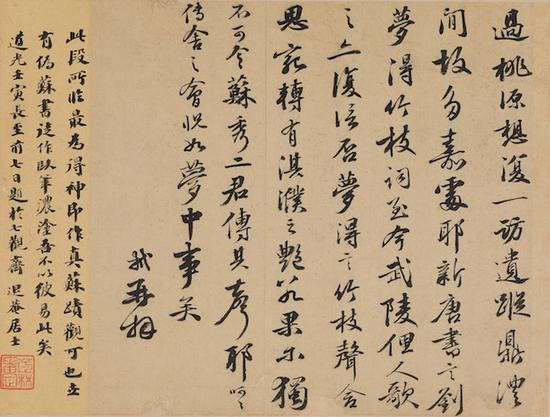 過桃源想復一訪遺蹤鼎澧
間故多嘉處耶新唐書言劉
夢得竹枝詞至今武陵俚人歌
之復信否夢得竹枝聲含
思宛轉有淇濮之艷若果尔獨
不可令蘇秀二君傳其音耶呵呵
傳舍之會怳如夢中事矣
軾再拜
此段所臨最為得神即作真蘇蹟觀可也世
有偽蘇書徒作臥筆濃塗吾不以彼易此矣
道光壬寅長至前七日題於七觀齋 退庵居士